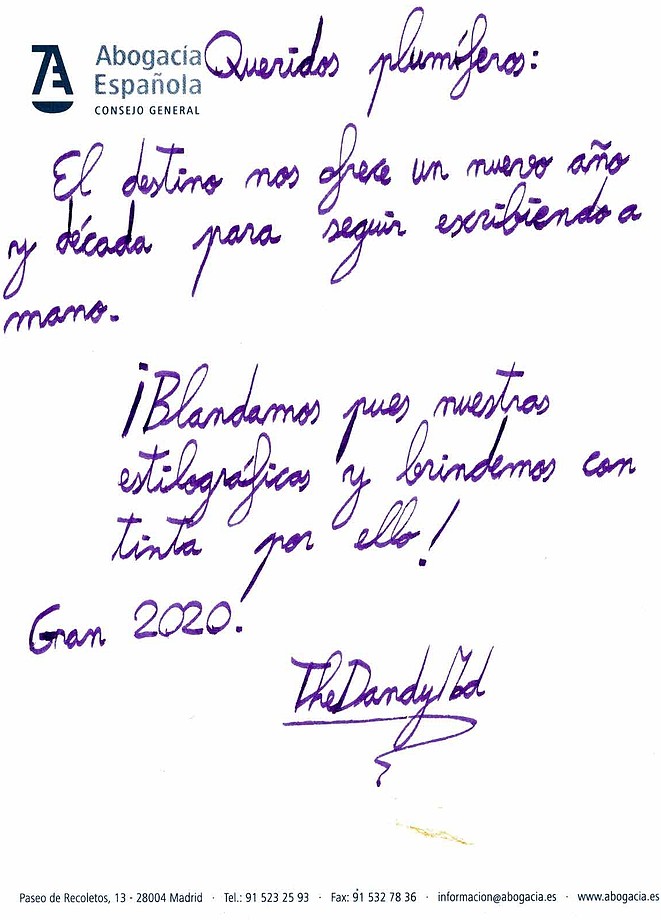 Abogacía
Española
CONSEJO GENERAL
Queridos plumíferos:
El destino nos ofrece un nuevo año
y década para seguir escribiendo a
mano.
¡Blandamos pues nuestras
estilográficas y brindemos con
tinta por ello!
Gran 2020.
TheDandyMod
Paseo de Recoletos, 13 - 28004 Madrid · Tel.: 91 523 25 93 · Fax: 91 532 78 36 · informacion@abogacia.es · www.abogacia.es